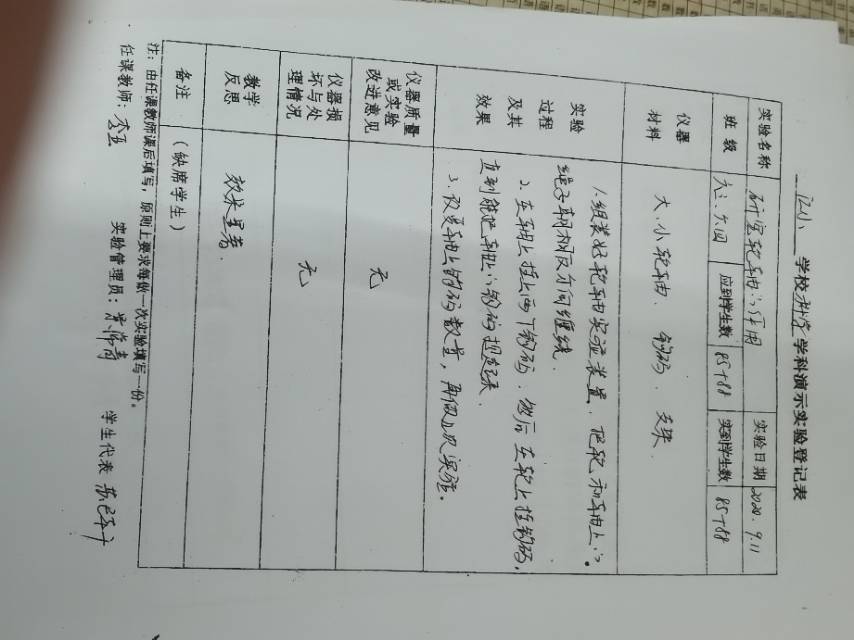 学校科学学科演示实验登记表
实验名称 研究轮轴的作用 实验日期 2020.9.11
班级 六三、六四 应到学生数 85+88 实到学生数 85+88
仪器材料 大、小轮轴、钩码、支架
实验过程及其效果
1.组装好轮轴实验装置,把轮和轴上的
绳子朝相反方向缠绕.
2.在轴上挂上两个钩码.然后在轮上挂钩码,
直到能把轴上的钩码提起来.
3.改变轴上钩码数量,再做几次实验.
仪器质量或实验改进意见 无
仪器损坏与处理情况 无
教学反思 效果显著.
备注 (缺席学生)
注:由任课教师课后填写,原则上要求每做一次实验填写一份。
任课教师: 实验管理员: 学生代表